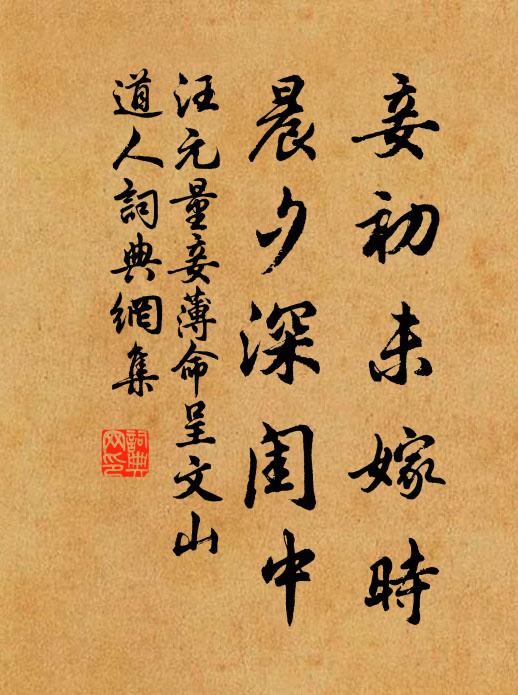 妾初未嫁時
晨夕深閨中
汪元量妾薄命呈文山
道人詞典網集
詞典網印